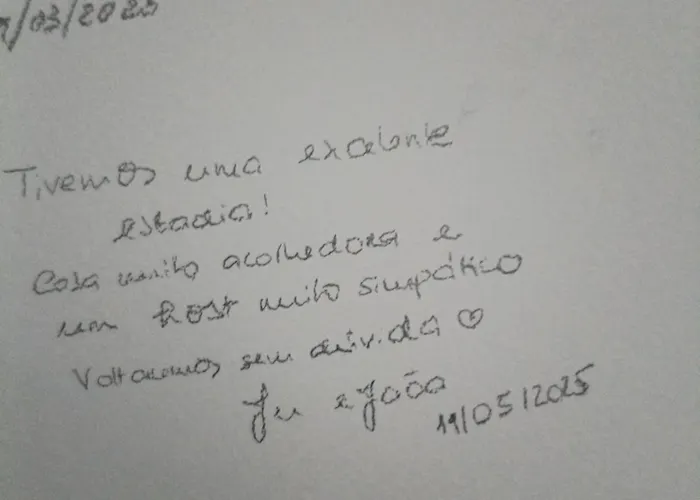 /03/2025
Tivemos uma excelente
estadia!
Casa muito acolhedora e
um host muito simpático
Voltaremos sem dúvida ♡
Ju e João
19/05/2025